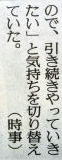 ので、引き続きやっていき
たい」と気持ちを切り替え
ていた。
（時事）